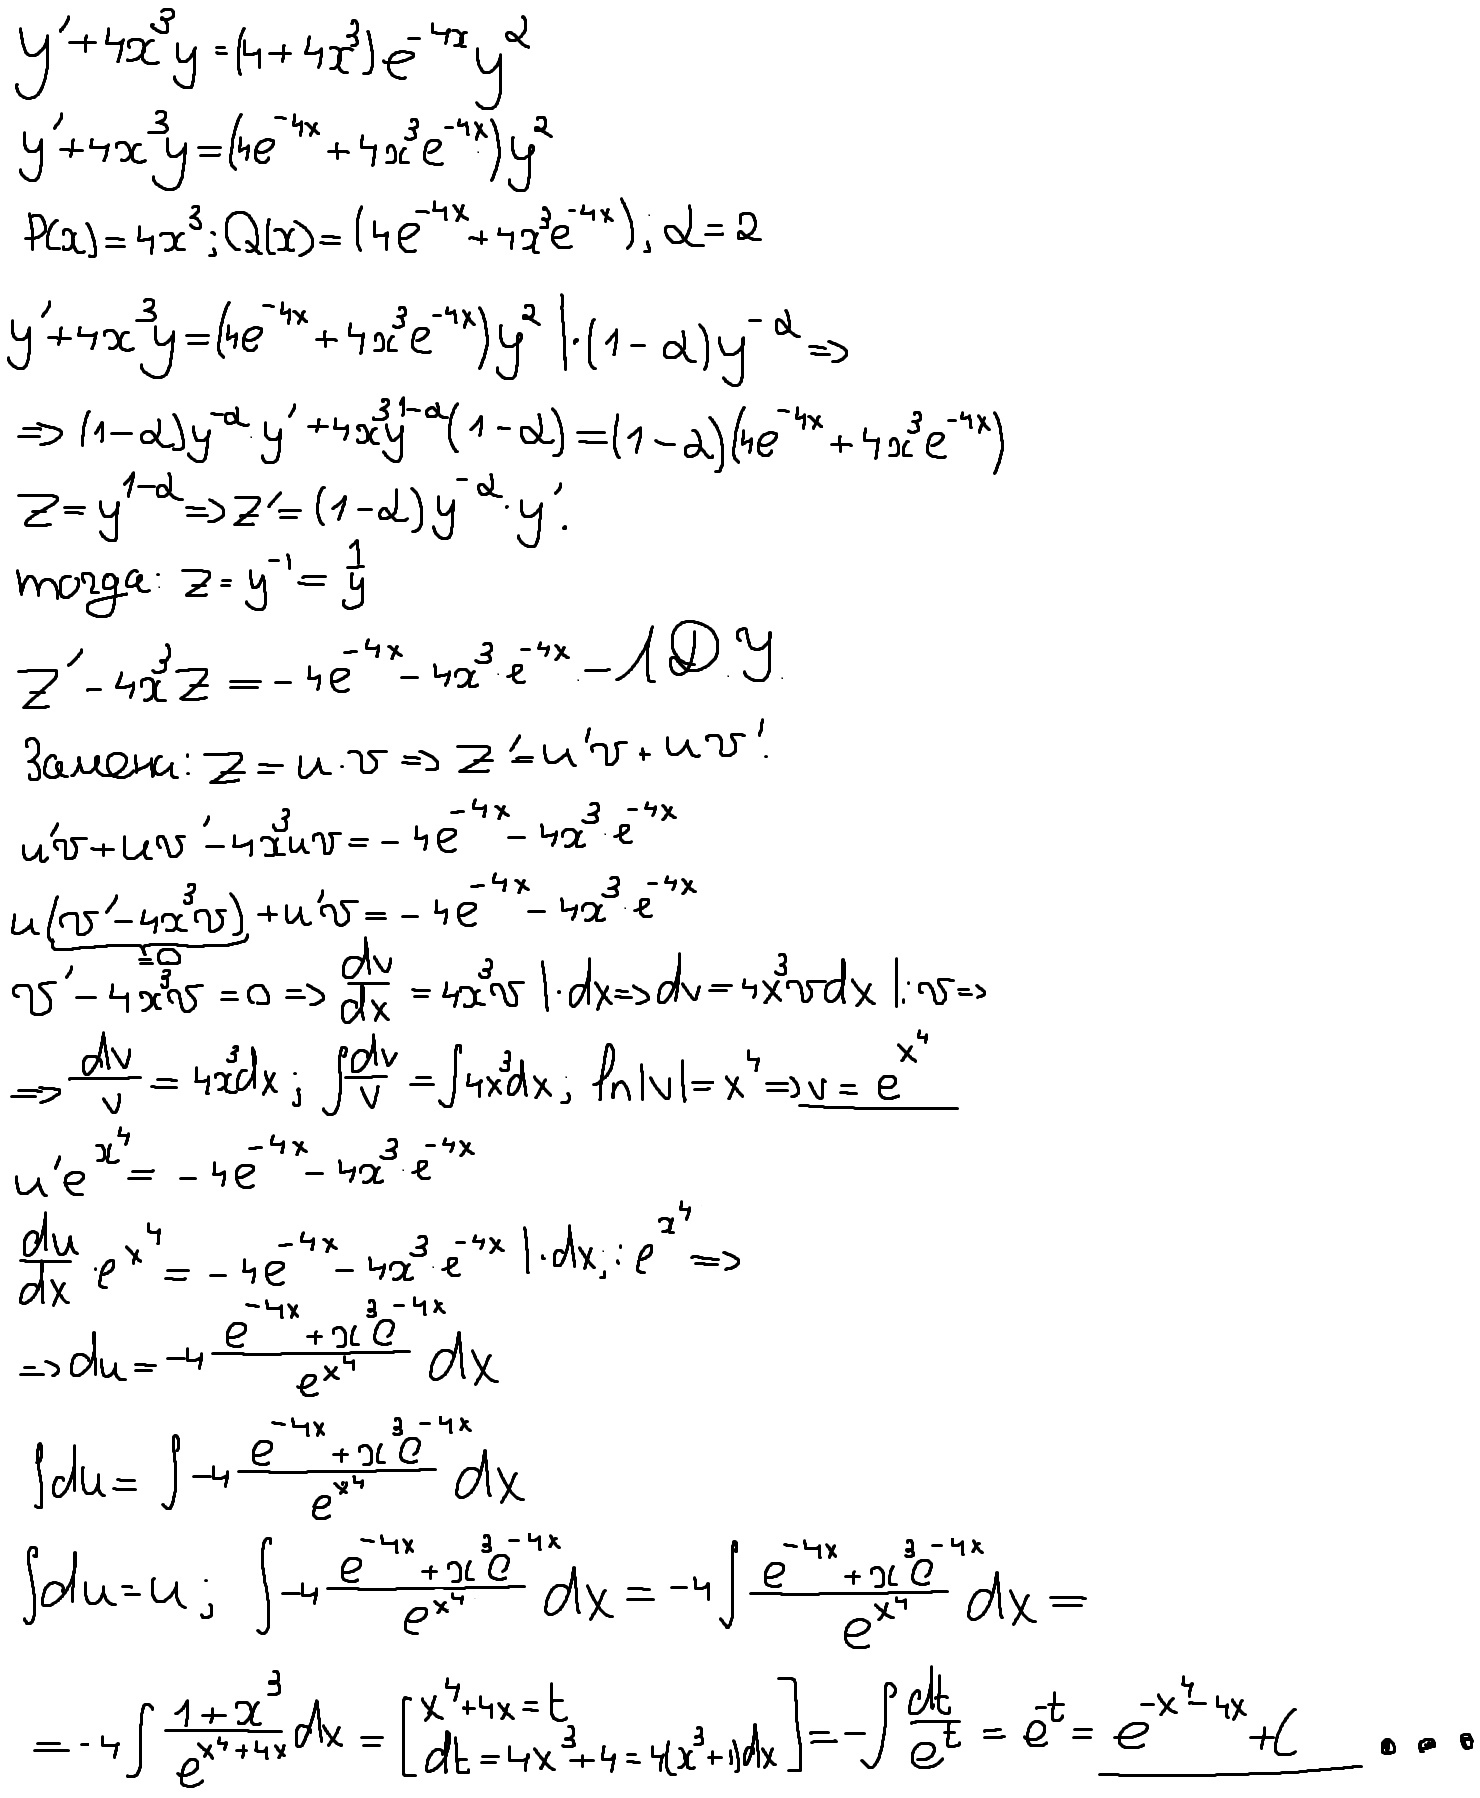 y' + 4x³y = (4 + 4x³)e^{-4x} y²
y' + 4x³y = (4e^{-4x} + 4x³e^{-4x})y²
P(x) = 4x³; Q(x) = (4e^{-4x} + 4x³e^{-4x}); α = 2
y' + 4x³y = (4e^{-4x} + 4x³e^{-4x})y² | · (1 - α)y^{-α} =>
=> (1 - α)y^{-α} · y' + 4x³y^{1-α}(1 - α) = (1 - α)(4e^{-4x} + 4x³e^{-4x})
z = y^{1-α} => z' = (1 - α)y^{-α} · y'.
тогда: z = y^{-1} = \frac{1}{y}
z' - 4x³z = -4e^{-4x} - 4x³ · e^{-4x} - ЛДУ.
Замена: z = u · v => z' = u'v + uv'.
u'v + uv' - 4x³uv = -4e^{-4x} - 4x³ · e^{-4x}
u(v' - 4x³v) + u'v = -4e^{-4x} - 4x³ · e^{-4x}
=0
v' - 4x³v = 0 => \frac{dv}{dx} = 4x³v | · dx => dv = 4x³vdx | : v =>
=> \frac{dv}{v} = 4x³dx; ∫\frac{dv}{v} = ∫4x³dx; ln|v| = x⁴ => v = e^{x⁴}
u'e^{x⁴} = -4e^{-4x} - 4x³ · e^{-4x}
\frac{du}{dx} · e^{x⁴} = -4e^{-4x} - 4x³ · e^{-4x} | · dx, : e^{x⁴} =>
=> du = -4\frac{e^{-4x} + x³e^{-4x}}{e^{x⁴}} dx
∫du = ∫-4\frac{e^{-4x} + x³e^{-4x}}{e^{x⁴}} dx
∫du = u; ∫-4\frac{e^{-4x} + x³e^{-4x}}{e^{x⁴}} dx = -4∫\frac{e^{-4x} + x³e^{-4x}}{e^{x⁴}} dx =
= -4∫\frac{1 + x³}{e^{x⁴+4x}} dx = [x⁴ + 4x = t dt = 4x³ + 4 = 4(x³ + 1)dx] = -∫\frac{dt}{e^t} = e^{-t} = e^{-x⁴-4x} + C ...